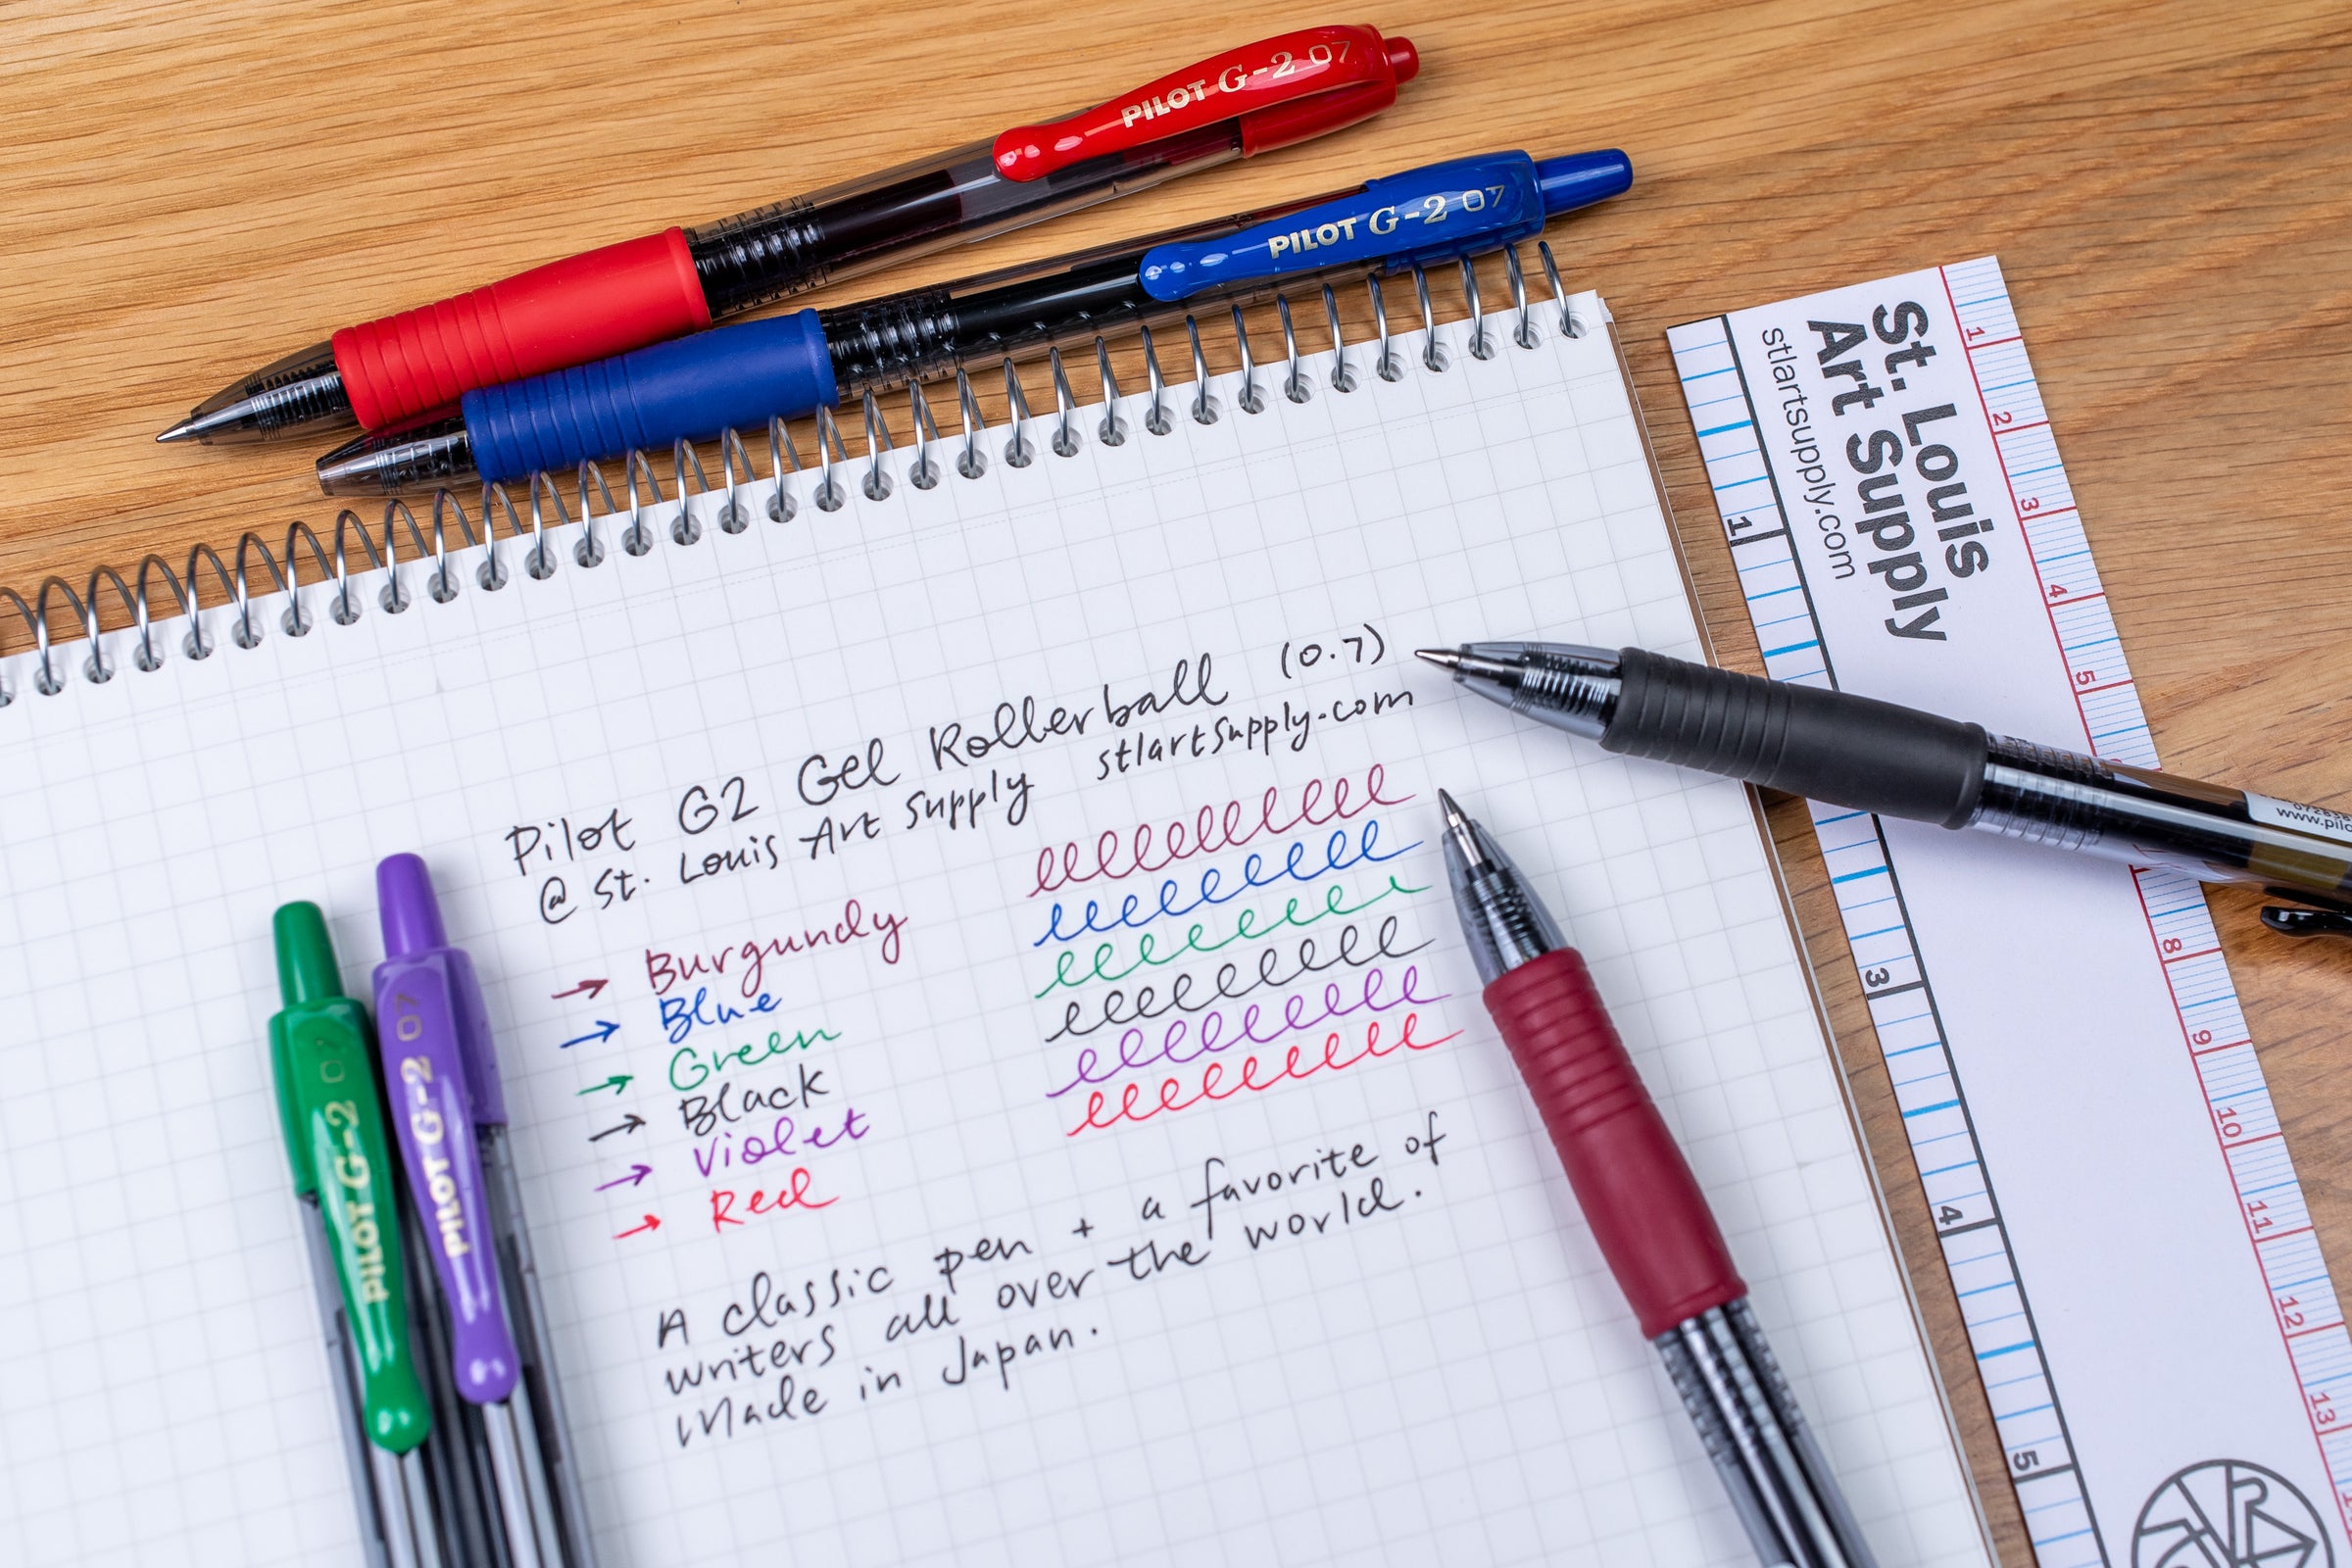 PILOT G-2 07
PILOT G-2 07
St. Louis
Art Supply
stlartsupply.com
1
2
3
4
5
8
9
10
11
12
13
1
3
4
5
Pilot G2 Gel Rollerball (0.7)
@ St. Louis Art Supply stlartsupply.com
→ Burgundy
→ Blue
→ Green
→ Black
→ Violet
→ Red
A classic pen + a favorite of
writers all over the world.
Made in Japan.
PILOT G-2 07
PILOT G-2 07